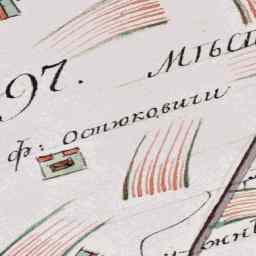 97. Мѣст
ф: Остюковичи